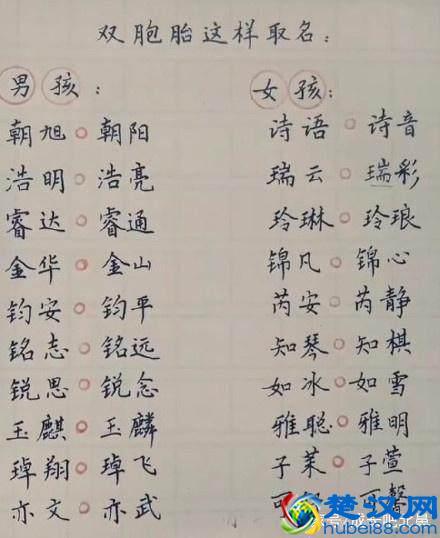 双胞胎这样取名：
男孩：
朝旭。朝阳
浩明。浩亮
睿达。睿通
金华。金山
钧安。钧平
铭志。铭远
锐思。锐念
玉麒。玉麟
琸翔。琸飞
亦文。亦武
女孩：
诗语。诗音
瑞云。瑞彩
玲琳。玲琅
锦凡。锦心
芮安。芮静
知琴。知棋
如冰。如雪
雅聪。雅明
子茱。子萱
可 馨
楚汉网
hubei88.com